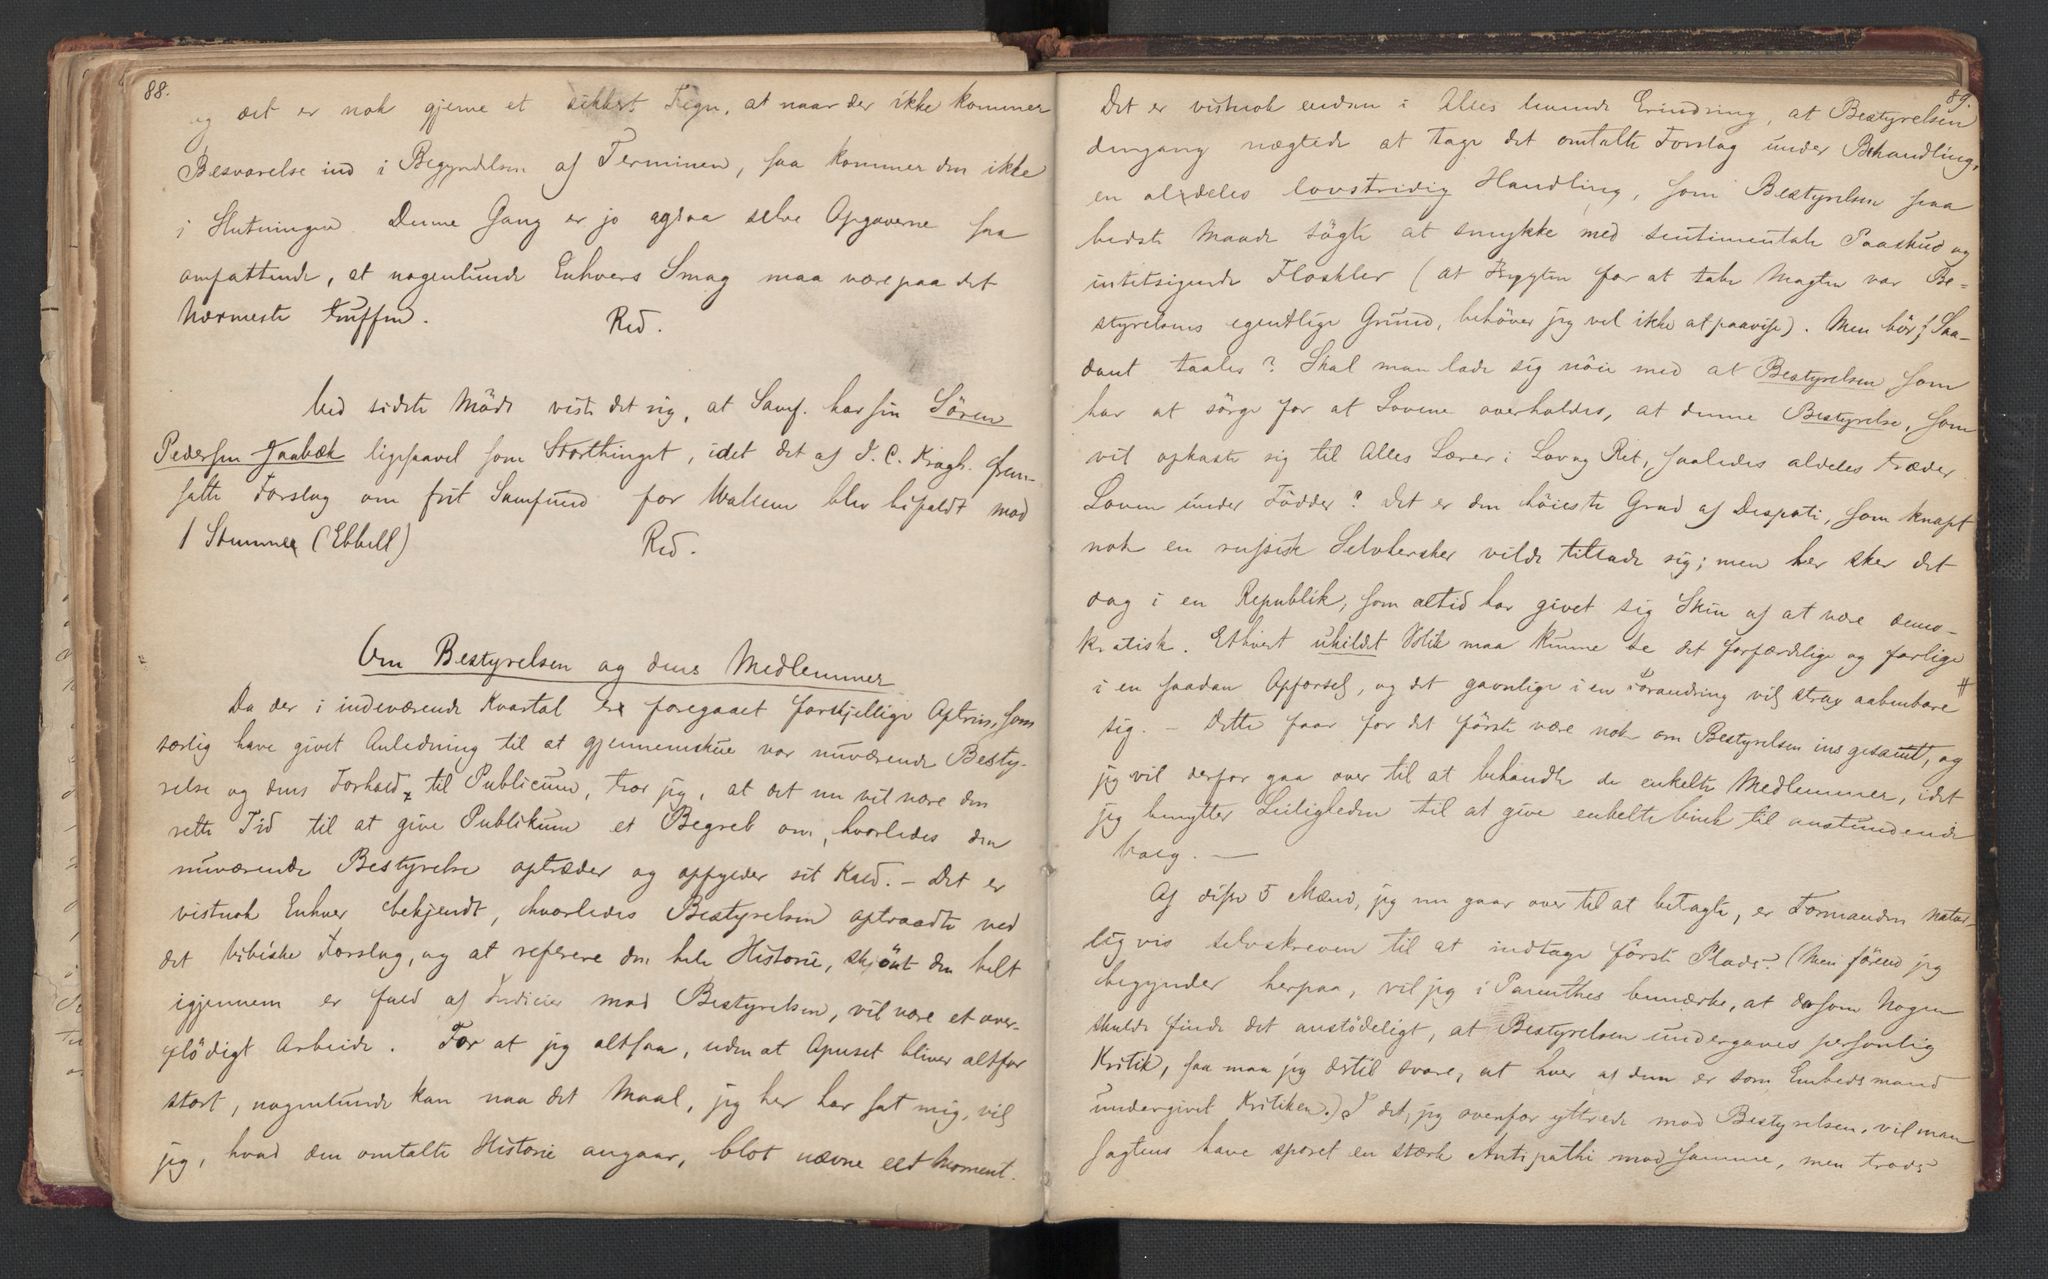 88.
og det er nok gjerne et sikkert Tegn, at naar der ikke kommer
Besvarelse ind i Begyndelsen af Terminen, saa kommer den ikke
i Slutningen. Denne Gang er jo ogsaa selve Opgaverne saa
omfattende, at nogenlunde Enhvers Smag maa være paa det
Nærmeste truffen. Red.
Ved sidste Möde viste det sig, at Samf. har sin Sören
Pedersen Jaabæk ligesaavel som Storthinget, idet det af J. C. Kragh frem-
satte Forslag om frit Samfund for Wallem blev bifaldt mod
1 Stemme (Ebbell) Red.
Om Bestyrelsen og dens Medlemmer
Da der i indeværende Kvartal er foregaaet forskjellige Optrin, som
særlig have givet Anledning til at gjennemskue vor nuværende Besty-
relse og dens Forhold til Publicum, tror jeg, at det nu vil være den
rette Tid til at give Publikum et Begreb om, hvorledes den
nuværende Bestyrelse optræder og opfylder sit Kald. – Det er
vistnok Enhver bekjendt, hvorledes Bestyrelsen optraadte ved
det Forslag, og at referere den hele Historie, skjönt den helt
igjennem er fuld af Indicier mod Bestyrelsen, vil være et over-
flödigt Arbeide. For at jeg altsaa, uden at Opuset bliver altfor
stort, nogenlunde kan naa det Maal, jeg her har sat mig, vil
jeg, hvad den omtalte Historie angaar, blot nævne eet Moment.
89.
Det er vistnok endnu i Alles Erindring, at Bestyrelsen
dengang nægtede at tage det omtalte Forslag under Behandling,
en aldeles lovstridig Handling, som Bestyrelsen paa
bedste Maade sögte at smykke med sentimentale Paaskud og
intetsigende Floskler (at Frygten for at tabe Magten var Be-
styrelsens egentlige Grund, behöver jeg vel ikke at paavise). Men bör Saa-
dant taales? Skal man lade sig nöie med at Bestyrelsen som
har at sörge for at Lovene overholdes, at denne Bestyrelse, som
vil opkaste sig til Alles Lærer i Lov og Ret, saaledes aldeles træder
Loven under Födder? Det er den höieste Grad af Despoti, som knapt
nok en russisk Selvhersker vilde tillade sig; men her sker det
dog i en Republik, som altid har givet sig Skin af at være demo-
kratisk. Ethvert uhildet Blik maa kunne se det forfærdelige og farlige
i en saadan Opførsel, og det gavnlige i en Forandring vil strax aabenbare
sig. – Dette faar for det förste være nok om Bestyrelsen ins gesamt, og
jeg vil derfor gaa over til at behandle de enkelte Medlemmer, idet
jeg benytter Leiligheden til at give enkelte Vink til anstundende
Valg. –
Af disse 5 Mænd, jeg nu gaar over til at betragte, er Formanden natur-
ligvis selvskreven til at indtage förste Plads. (Men förend jeg
begynder herpaa, vil jeg i Parenthes bemærke, at dersom Nogen
skulde finde det anstödeligt, at Bestyrelsen undergaves personlig
Kritik, saa maa jeg dertil svare, at hver af dem er som Embedsmand
undergivet Kritiken.) I det, jeg ovenfor yttrede mod Bestyrelsen, vil man
sagtens have sporet en stærk Antipathi mod samme, men trods